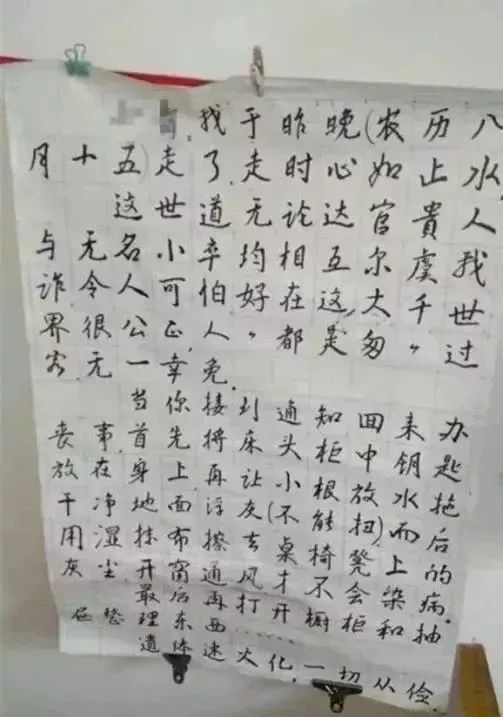 我于昨晚(农历八
月十五)走了,走时心如止水,
这世道无论达官贵人
与无名小卒均相互尔虞我
诈令人可怕.好在这大千世
界很公正,人人都是匆匆过
客无一幸免.
当你接到通知回来办
丧事首先将床头柜中钥匙
放在身上再让小根放水拖
干净地面浮灰(不能扭)而后
用湿抹布擦去桌椅凳上的
灰尘开窗通风才不会染病.
最后再打开橱柜和抽
屉整理东西……
遗体速火化,一切从俭.